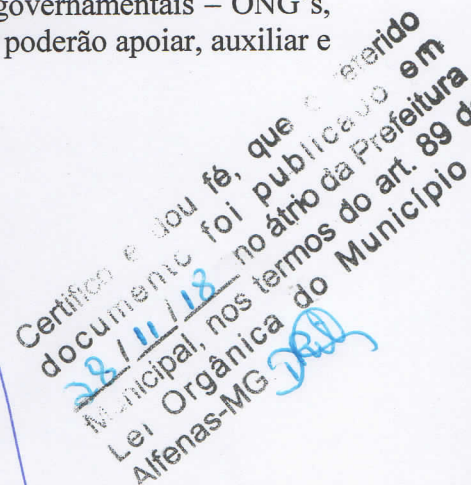 governamentais – ONG's,
poderão apoiar, auxiliar e
Certifico e dou fé, que o referido
documento foi publicado em
28/11/18 no átrio da Prefeitura
Municipal, nos termos do art. 89 d
Lei Orgânica do Município
Alfenas-MG